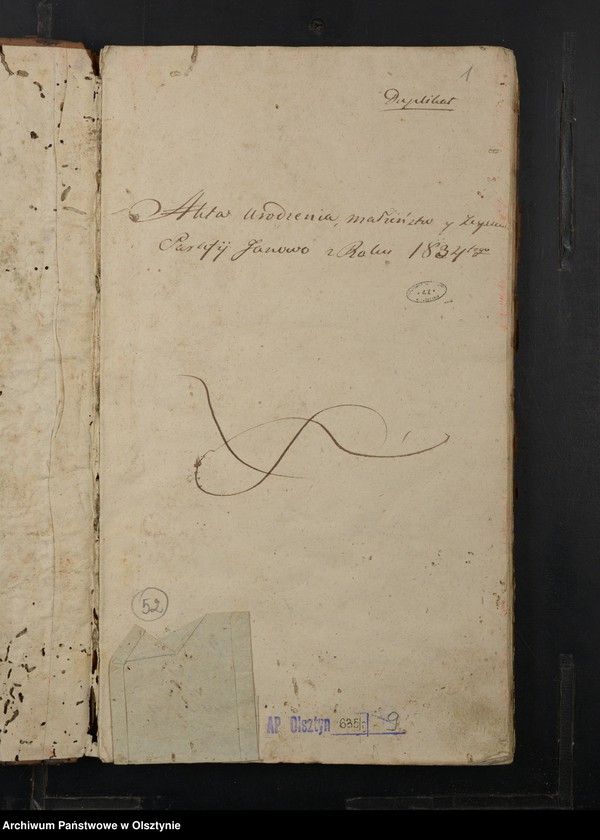 1
Duplikat
Akta Urodzenia, małżeństw y Zejścia
Parafij Janowo z Roku 1834tego
52
AP Olsztyn 635 - 9
Archiwum Państwowe w Olsztynie